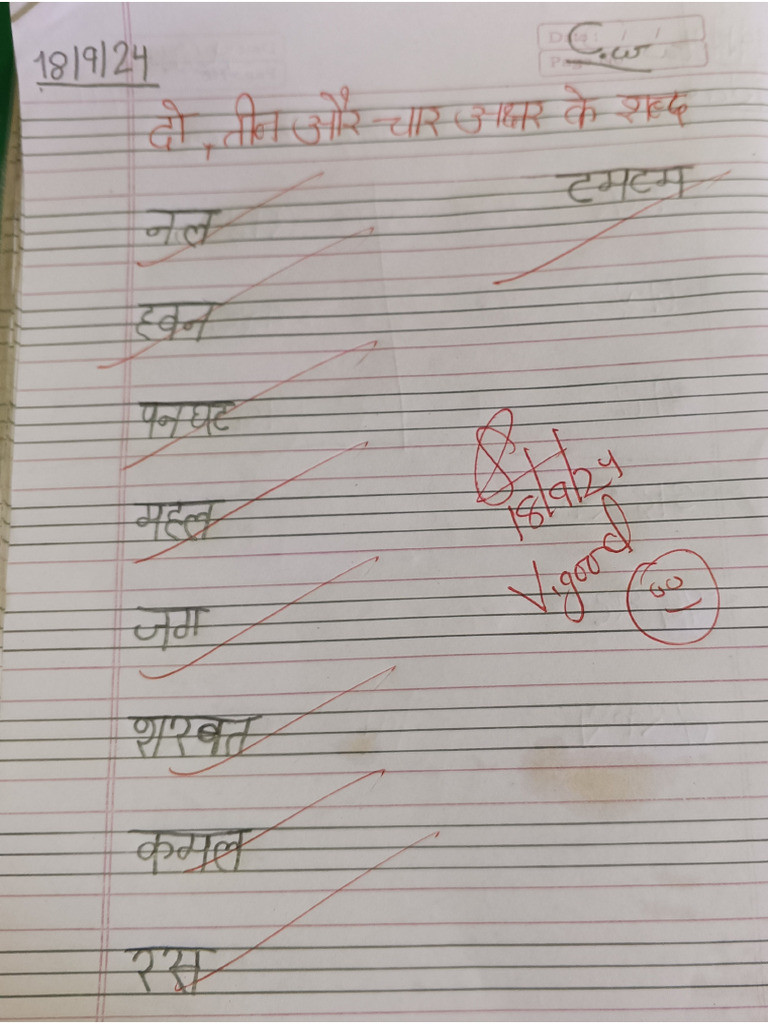 18/9/24
C.w
दो, तीन और चार अक्षर के शब्द
नल
टमटम
हवन
पनघट
महल
18/9/24
V.good
जग
शरबत
कमल
रस